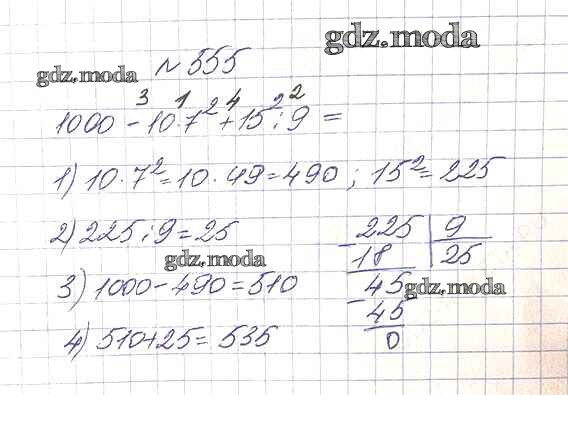 gdz.moda
gdz.moda
№ 555
3 1 4 2
1000 - 10·7² + 15² : 9 =
1) 10·7² = 10·49 = 490 ; 15² = 225
2) 225 : 9 = 25
gdz.moda
3) 1000 - 490 = 510
4) 510 + 25 = 535
225 | 9
- 18 | 25
45
gdz.moda
- 45
0